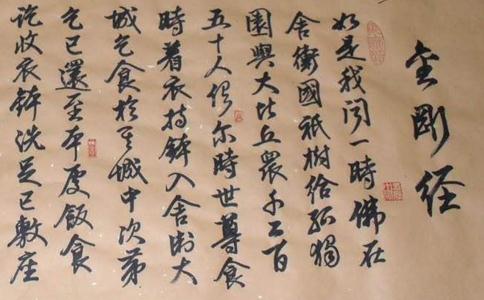 金剛经
如是我闻一時佛在
舍衛國祇樹給孤獨
園與大比丘眾千二百
五十人俱尔時世尊食
時着衣持鉢入舍衛大
城乞食於其城中次第
乞已還至本處飯食
訖收衣鉢洗足已敷座